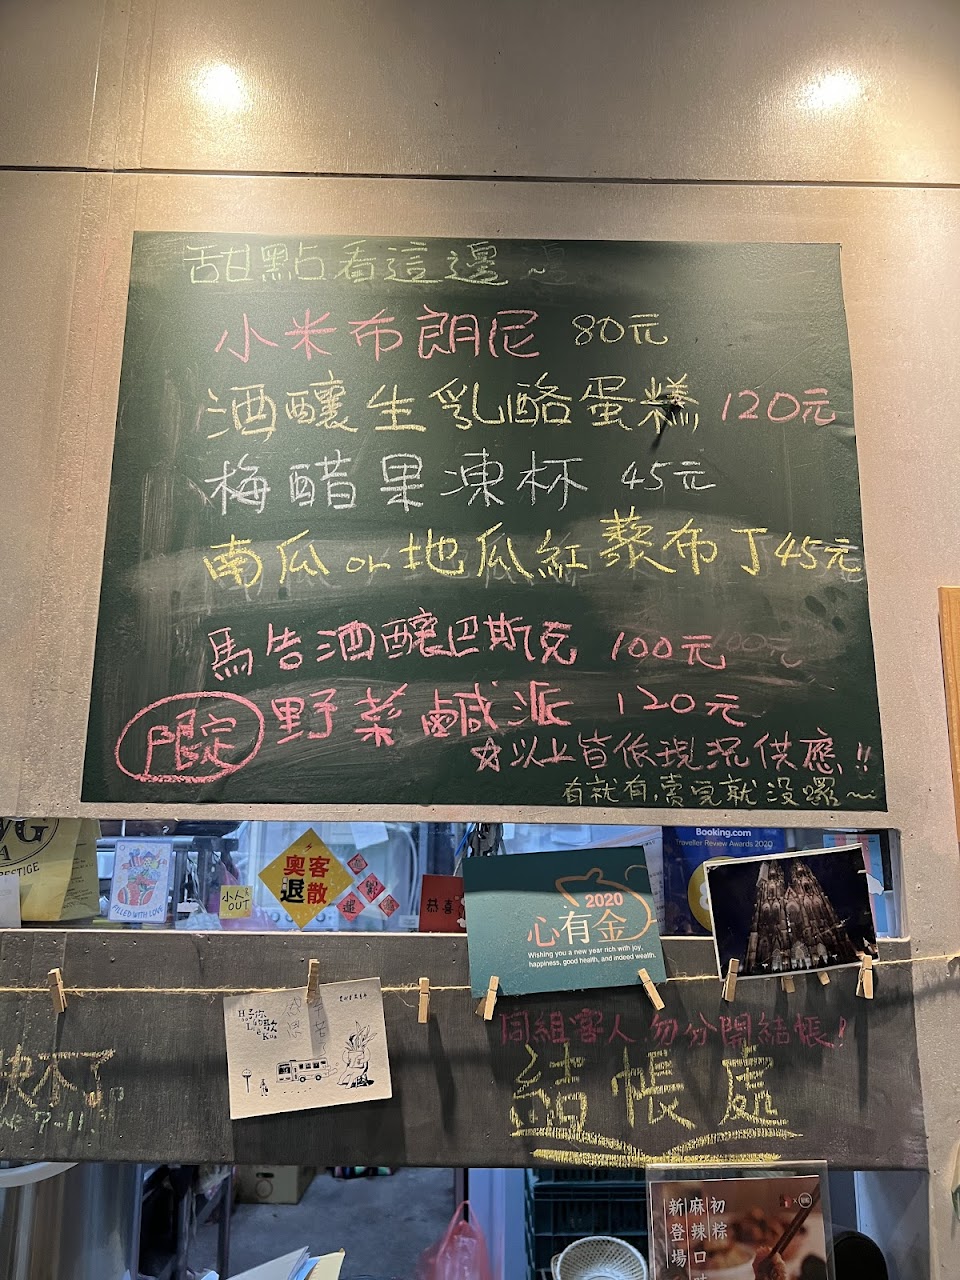 甜點看這邊~
小米布朗尼 80元
酒釀生乳酪蛋糕 120元
梅醋果凍杯 45元
南瓜or地瓜紅藜布丁45元
馬告酒釀巴斯克 100元
限定 野菜鹹派 120元
☆以上皆依現況供應!!
有就有,賣完就沒囉~
PRESTIGE
FILLED WITH LOVE
小人OUT
奧客
退散
恭喜
Booking.com
Traveller Review Awards 2020
2020
心有金
Wishing you a new year rich with joy,
happiness, good health, and indeed wealth.
同組客人勿分開結帳!
結帳處
7-11.
初粽
麻辣口味
新登場